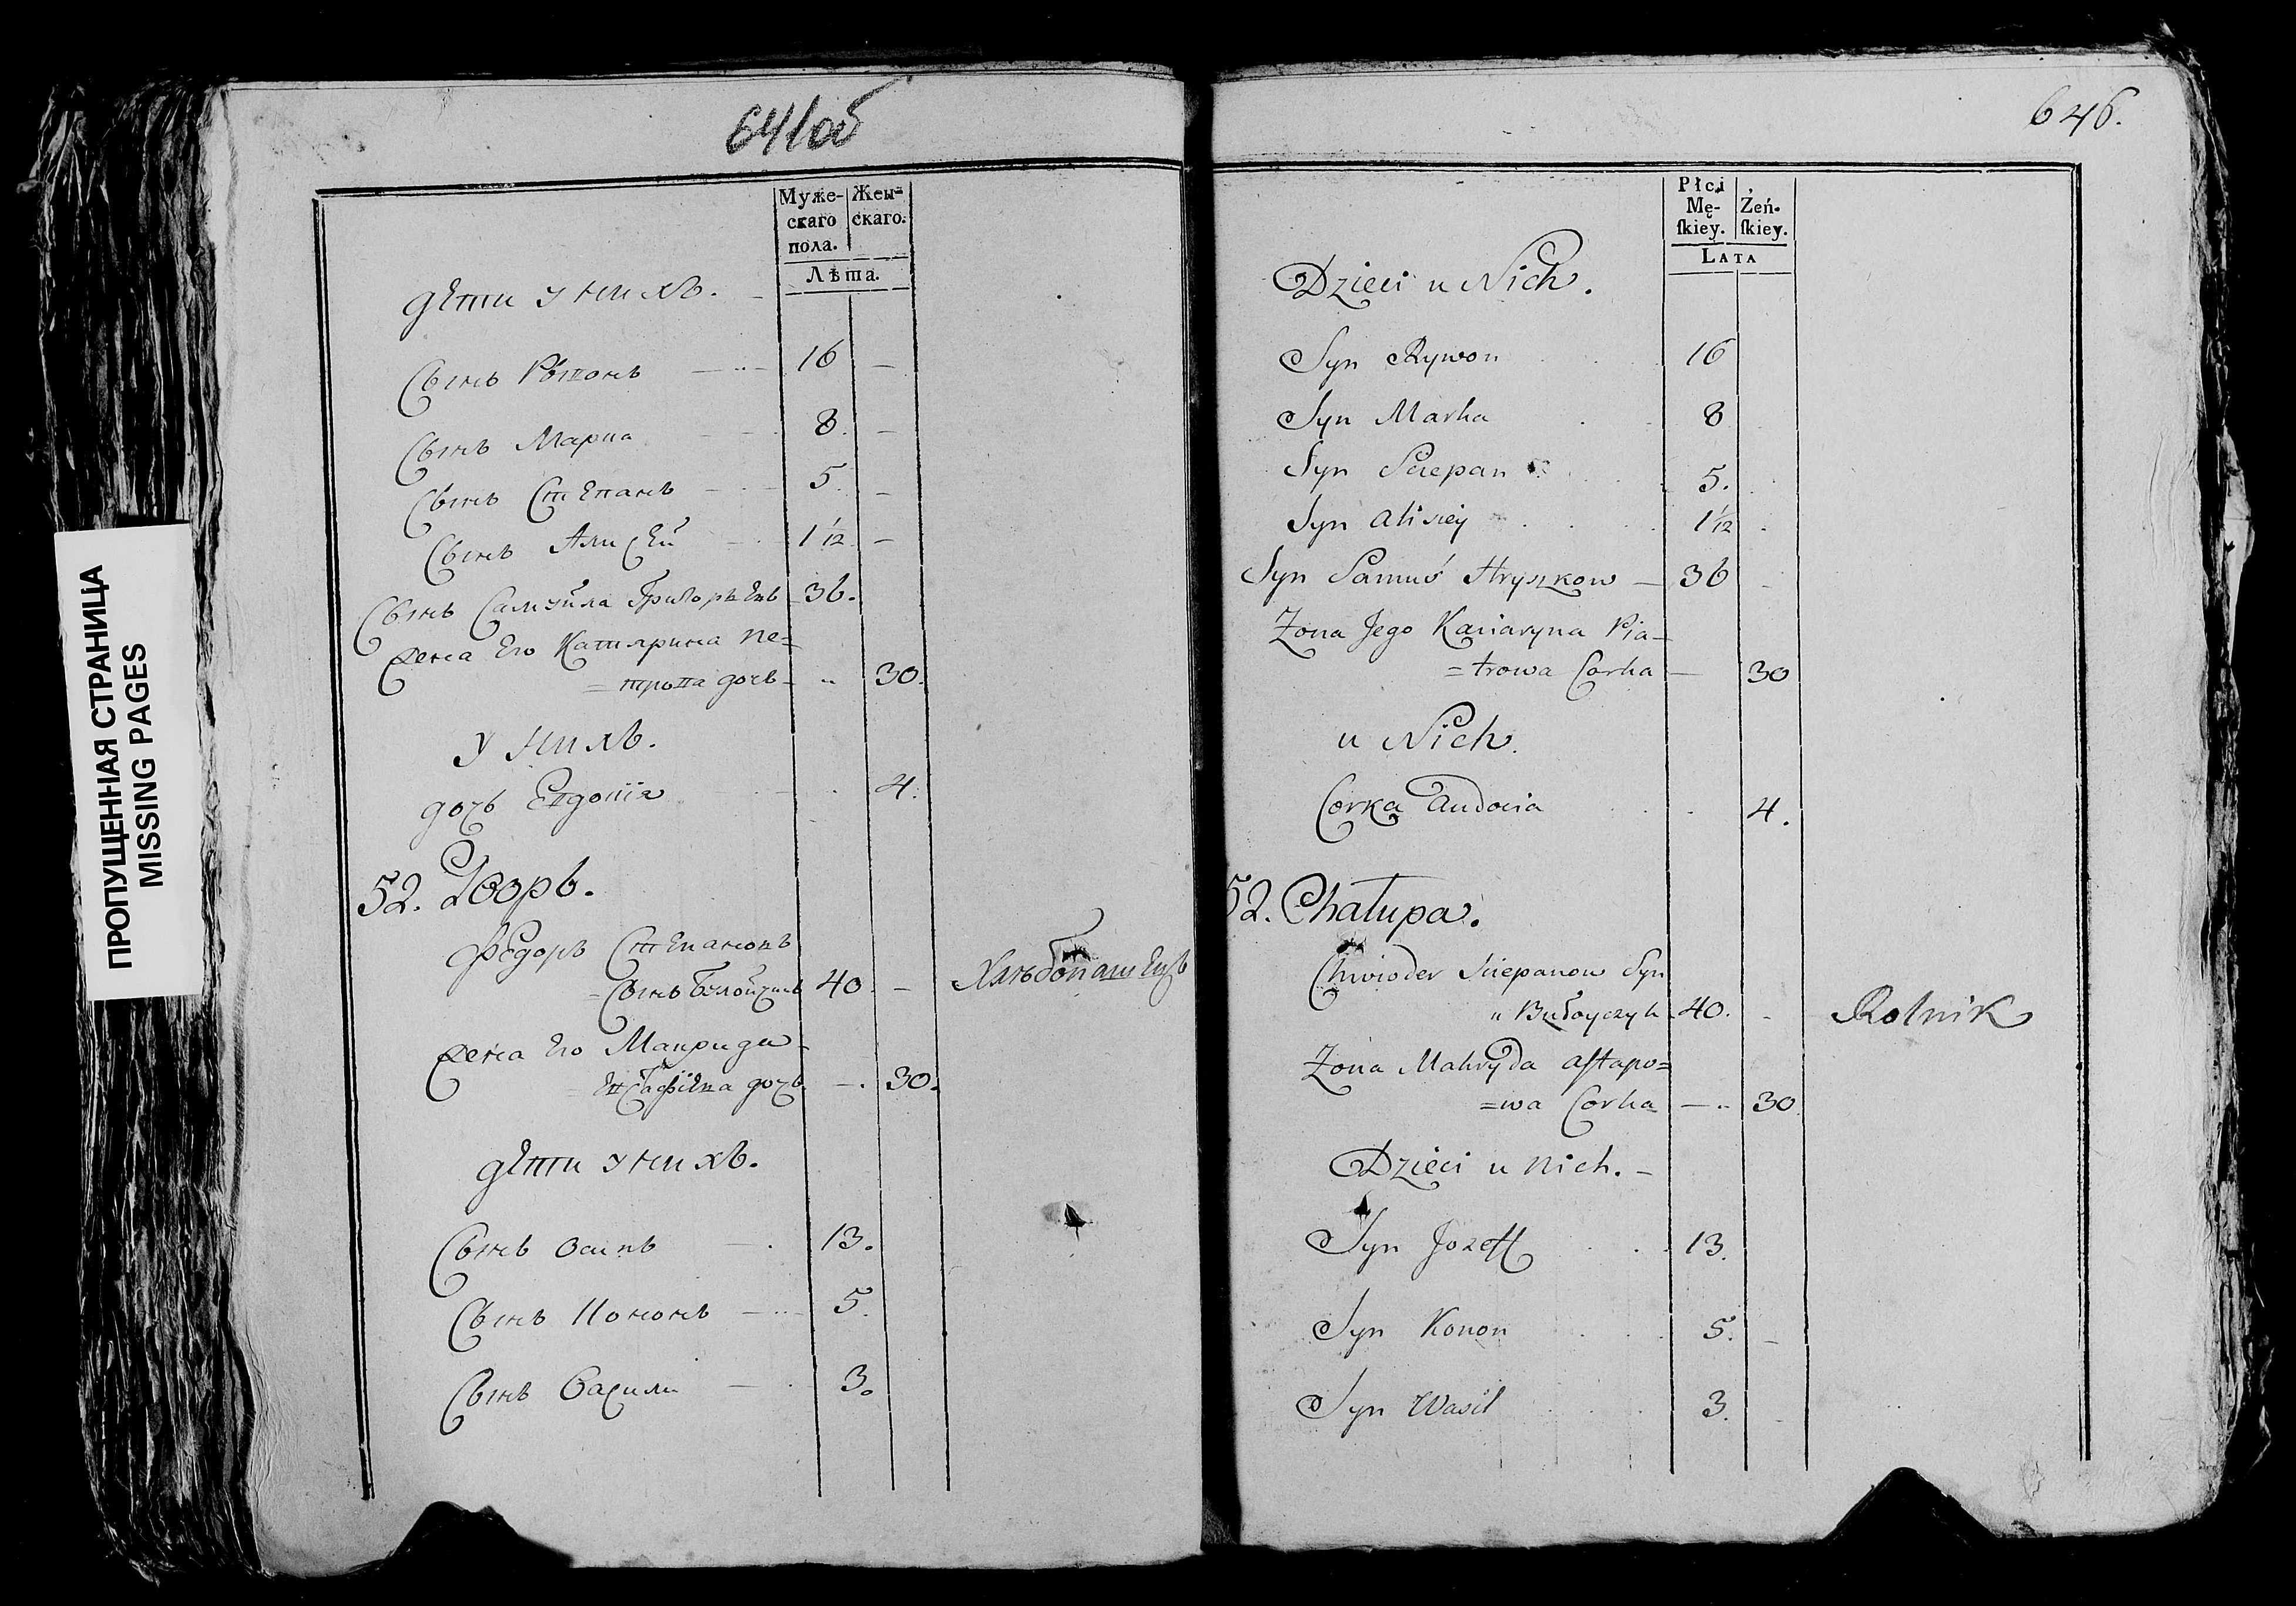 ПРОПУЩЕННАЯ СТРАНИЦА
MISSING PAGES
641об
Муже-
скаго
пола.
Жен-
скаго.
Лѣта.
дети у нихъ.
Сынъ Ривонъ 16
Сынъ Марка 8
Сынъ Степанъ 5
Сынъ Алисей 1 1/12
Сынъ Самуйла Григорьевъ 36.
Жена Его Катярина Пе=
=трова дочь 30.
У нихъ.
дочь Евдокія 4.
52. Дворъ.
Федоръ Степановъ
=Сынъ 40. Хлѣбопашецъ
Жена Его Маврида
=Евстафіева дочь 30.
дети у нихъ.
Сынъ Осипъ 13.
Сынъ Кононъ 5.
Сынъ Васили 3.
646.
Płci
Mę-
ſkiey.
Żeń-
ſkiey.
LATA
Dzieci u Nich.
Syn Rywon 16
Syn Marka 8
Syn Sciepan 5.
Syn Alisiey 1 1/12
Syn Samuś Hryszkow 36
Żona Jego Kaciaryna Pia=
=trowa Corka 30
u Nich.
Corka Audocia 4.
52. Chałupa.
Chwioder Sciepanow Syn
" Bułoyczyk 40. Rolnik
Żona Makryda Astapo=
=wa Corka 30
Dzieci u nich.
Syn Jozeff 13.
Syn Konon 5.
Syn Wasil 3.